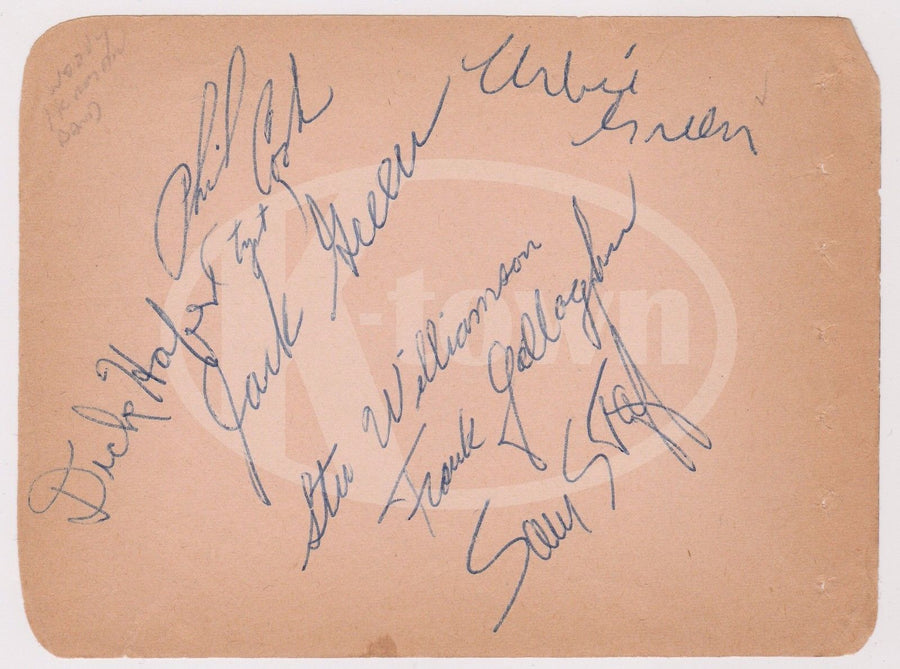 Woody
Herman
Band
Urbie
Green
Phil Cook
Jack Green
Dick Hafer
Stu Williamson
Frank Gallagher
Sam Staff
K-town